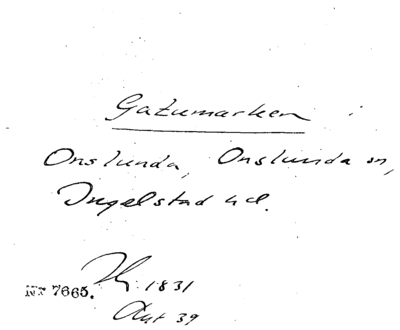 Gatumarken
Onslunda, Onslunda sn,
Ingelstad hd.
1831
Nr 7665.
39